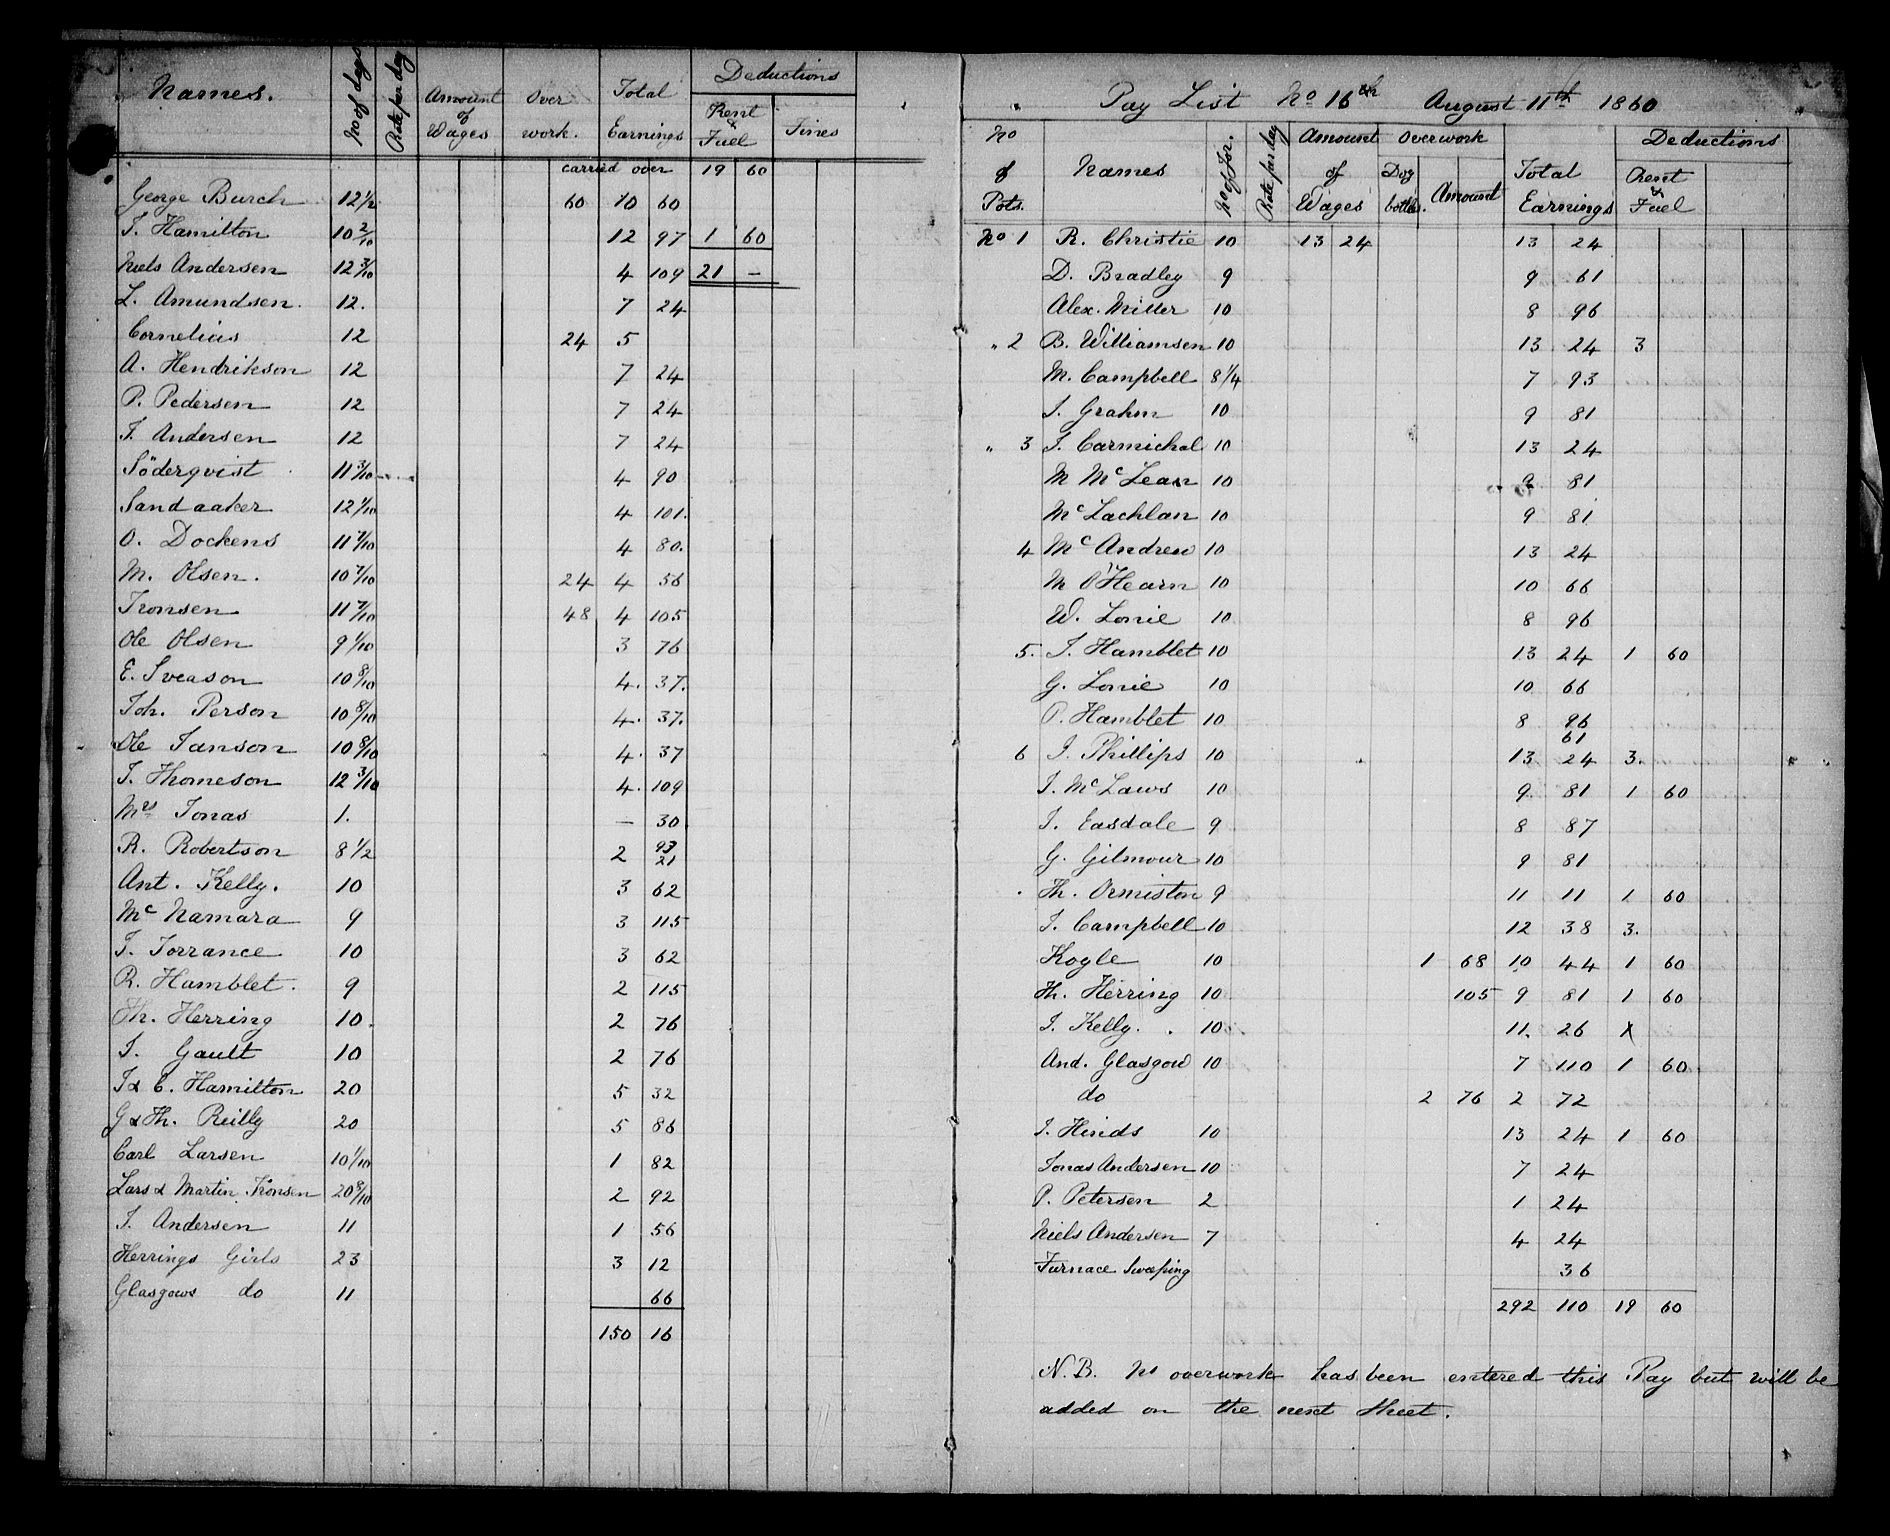 Names. No of days Rate per day Amount of Wages Over work. Total Earnings Deductions Rent & Fuel Fines
carried over 19 60
George Burch 12 1/2 60 10 60
J. Hamilton 10 2/10 12 97 1 60
Niels Andersen 12 3/10 4 109 21 —
L. Amundsen. 12. 7 24
Cornelius 12 24 5
A. Hendrikson 12 7 24
P. Pedersen 12 7 24
J. Andersen 12 7 24
Söderqvist 11 3/10 4 90
Sandaaker 12 1/10 4 101.
O. Dockens 11 7/10 4 80.
M. Olsen. 10 7/10 24 4 56
Tronsen 11 7/10 48 4 105
Ole Olsen 9 1/10 3 76
E. Sveason 10 8/10 4. 37.
Joh. Person 10 8/10 4. 37.
Ole Janson 10 8/10 4. 37
J. Thomeson 12 3/10 4. 109
Mrs Jonas 1. — 30
R. Robertson 8 1/2 2 93 21
Ant. Kelly. 10 3 62
Mc Namara 9 3 115
J. Torrance 10 3 62
R. Hamblet. 9 2 115
Th. Herring 10. 2 76
J. Gault 10 2 76
J & C. Hamilton 20 5 32
G & Th. Reilly 20 5 86
Carl Larsen 10 1/10 1 82
Lars & Martin Tronsen 20 8/10 2 92
J. Andersen 11 1 56
Herrings Girls 23 3 12
Glasgows do 11 66
150 16
Pay List No 16th August 11th 1860
No of Pots. Names No of Jor. Rate per day Amount of Wages Overwork Dog bottles. Amount Total Earnings Deductions Rent & Fuel
No 1 R. Christie 10 13 24 13 24
D. Bradley 9 9 61
Alex. Miller 10 8 96
" 2 B. Williamsen 10 13 24 3
M. Campbell 8 1/4 7 93
J. Grahm 10 9 81
" 3 J. Carmichal 10 13 24
M McLean 10 9 81
McLachlan 10 9 81
4 McAndrew 10 13 24
M O'Hearn 10 10 66
W. Lonie 10 8 96
5. J. Hamblet 10 13 24 1 60
G. Lonie 10 10 66
P. Hamblet 10 8 96
61
6 J. Phillips 10 13 24 3.
J. McLaws 10 9 81 1 60
J. Easdale 9 8 87
G. Gilmour 10 9 81
Th. Ormiston 9 11 11 1 60
J. Campbell 10 12 38 3.
Kogle 10 1 68 10 44 1 60
Th. Herring 10 105 9 81 1 60
J. Kelly. 10 11. 26 X
And. Glasgow 10 7 110 1 60
do 2 76 2 72
J. Hinds 10 13 24 1 60
Jonas Andersen 10 7 24
P. Petersen 2 1 24
Niels Andersen 7 4 24
Furnace Sweeping 36
292 110 19 60
N.B. No overwork has been entered this Pay but will be
added on the next sheet.